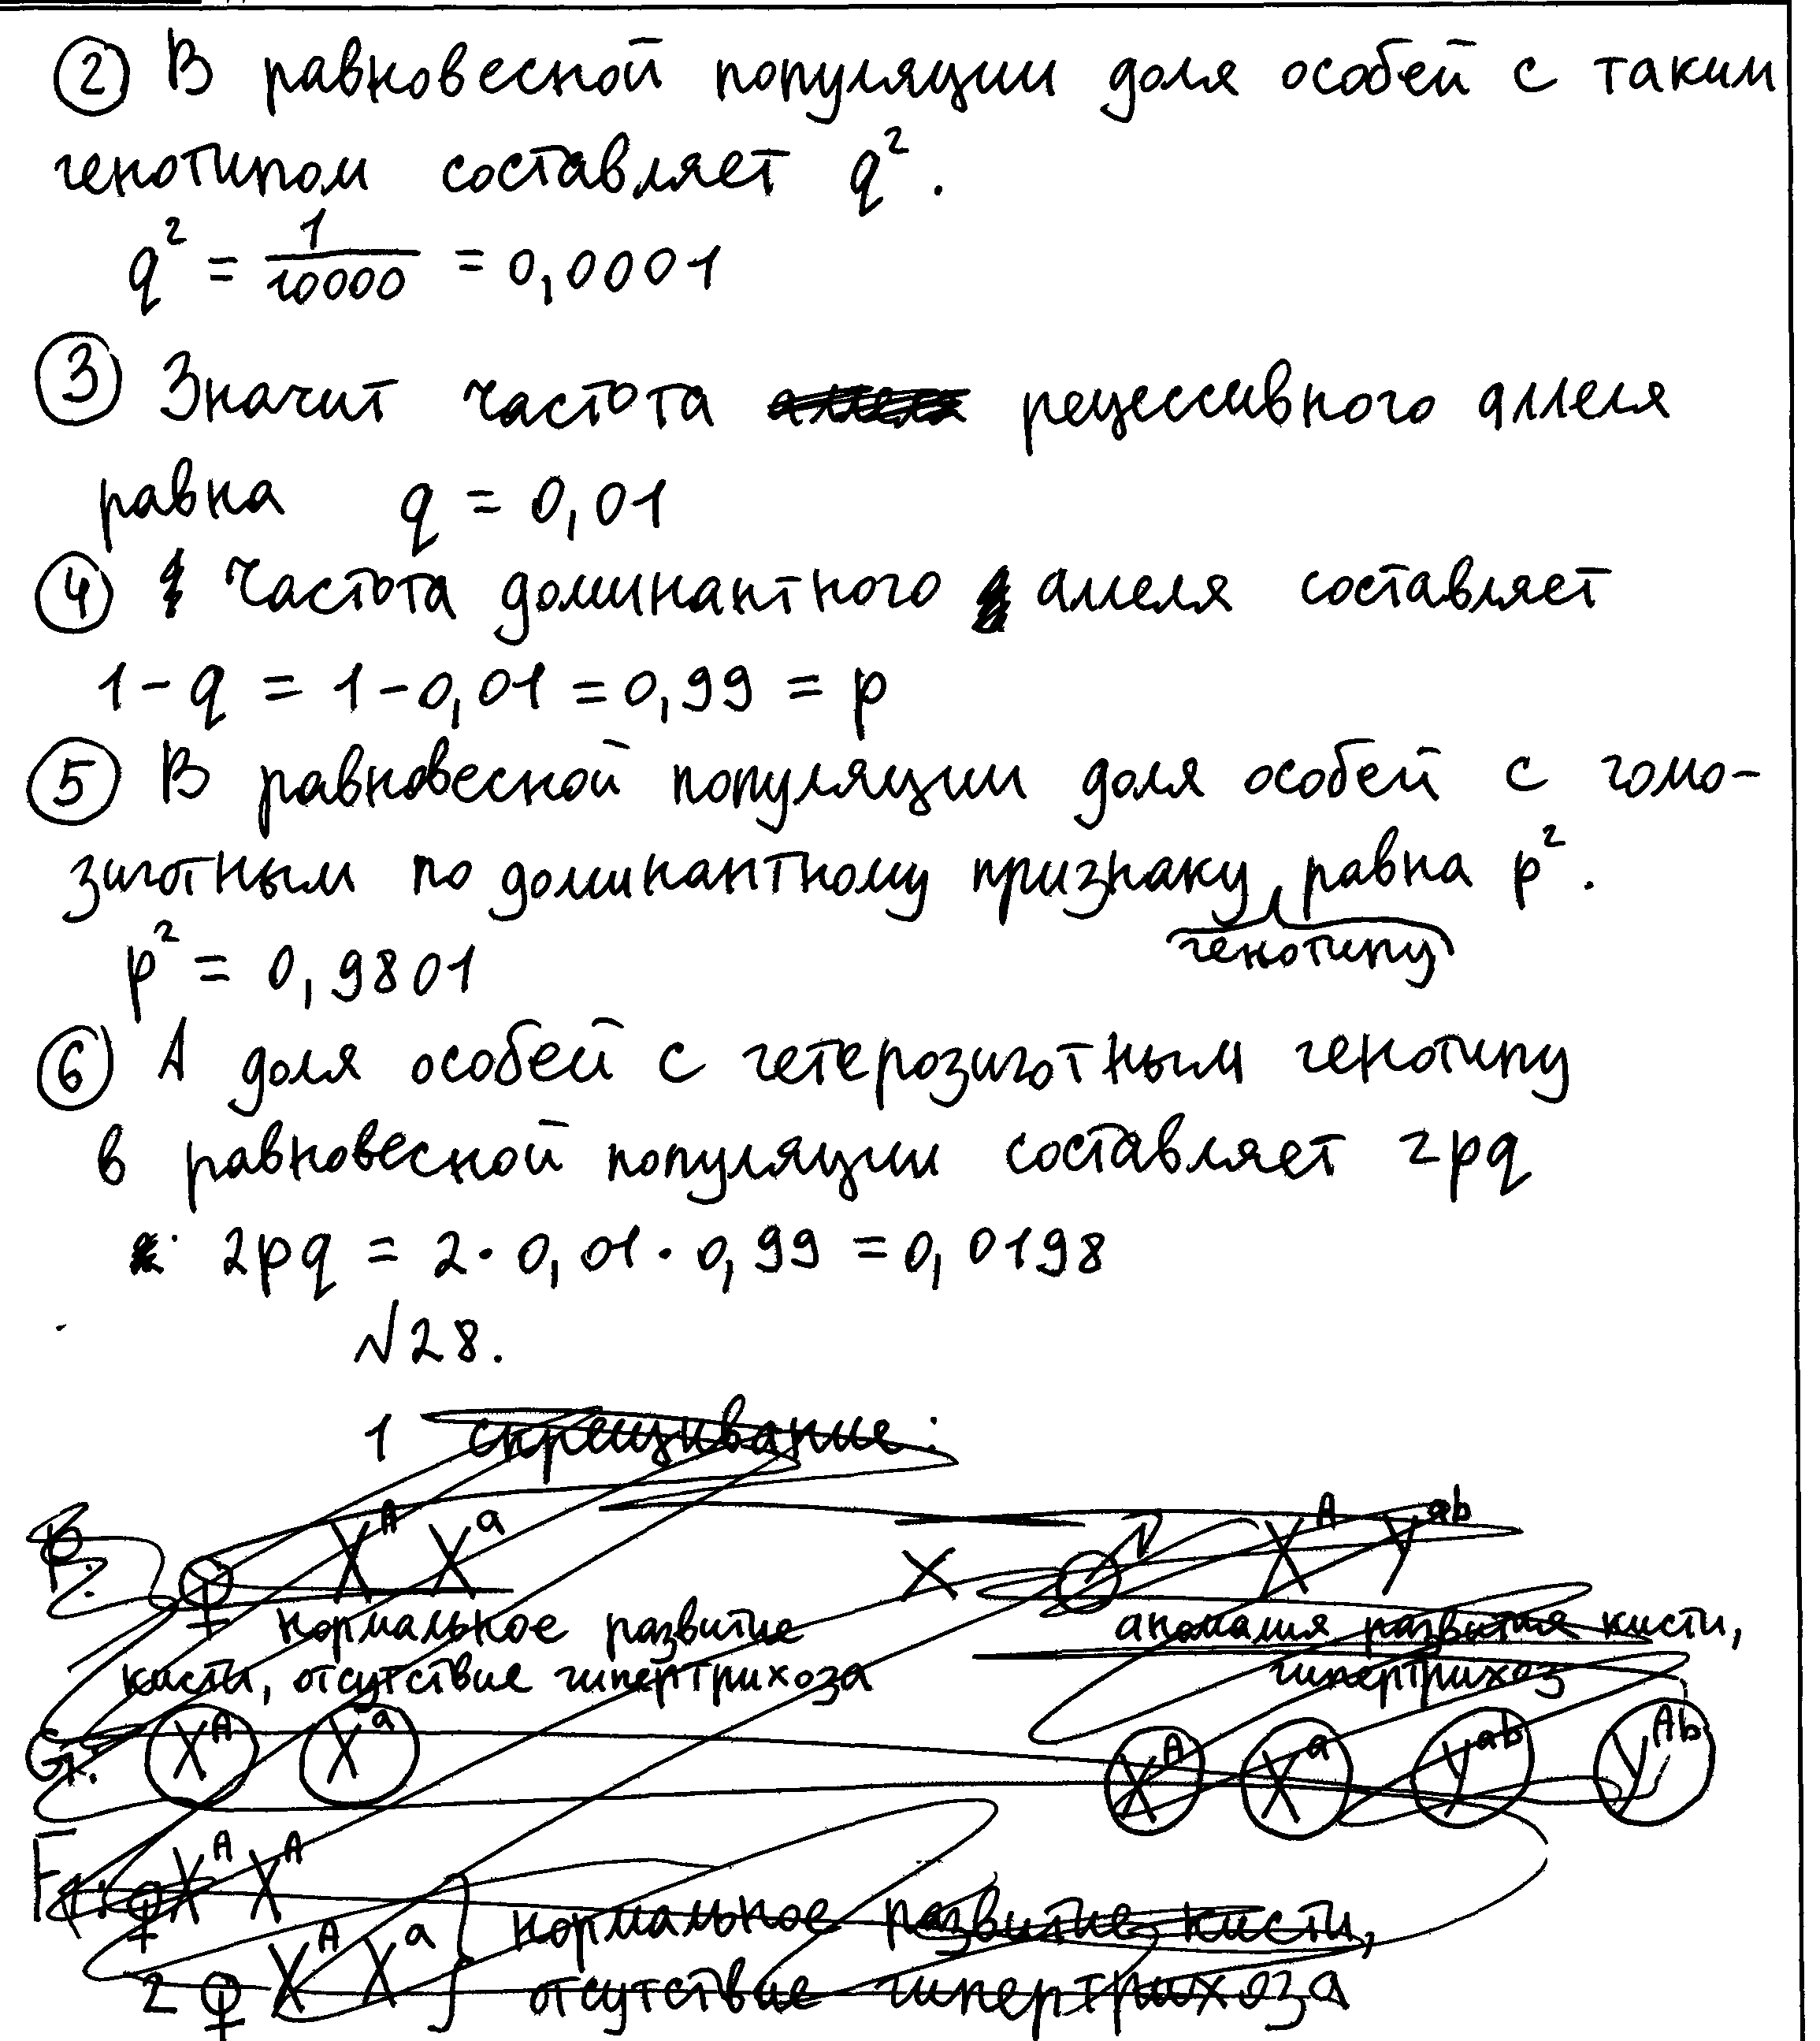 ② В равновесной популяции доля особей с таким
генотипом составляет q².
q² = 1/10000 = 0,0001
③ Значит частота аллеля рецессивного аллеля
равна q = 0,01
④ Частота доминантного аллеля составляет
1 - q = 1 - 0,01 = 0,99 = p
⑤ В равновесной популяции доля особей с гомо-
зиготным по доминантному признаку равна p².
генотипу
p² = 0,9801
⑥ А доля особей с гетерозиготным генотипу
в равновесной популяции составляет 2pq
2pq = 2 · 0,01 · 0,99 = 0,0198
№28.
1 скрещивание:
P: ♀ Xᴬ Xᵃ × ♂ Xᴬ Yᵃᵇ
нормальное развитие аномалия развития кисти,
кисти, отсутствие гипертрихоза гипертрихоз
G: Xᴬ Xᵃ Xᴬ Xᵃ Yᵃᵇ Yᴬᵇ
F1: ♀ Xᴬ Xᴬ
нормальное развитие кисти,
2 ♀ Xᴬ Xᵃ } отсутствие гипертрихоза